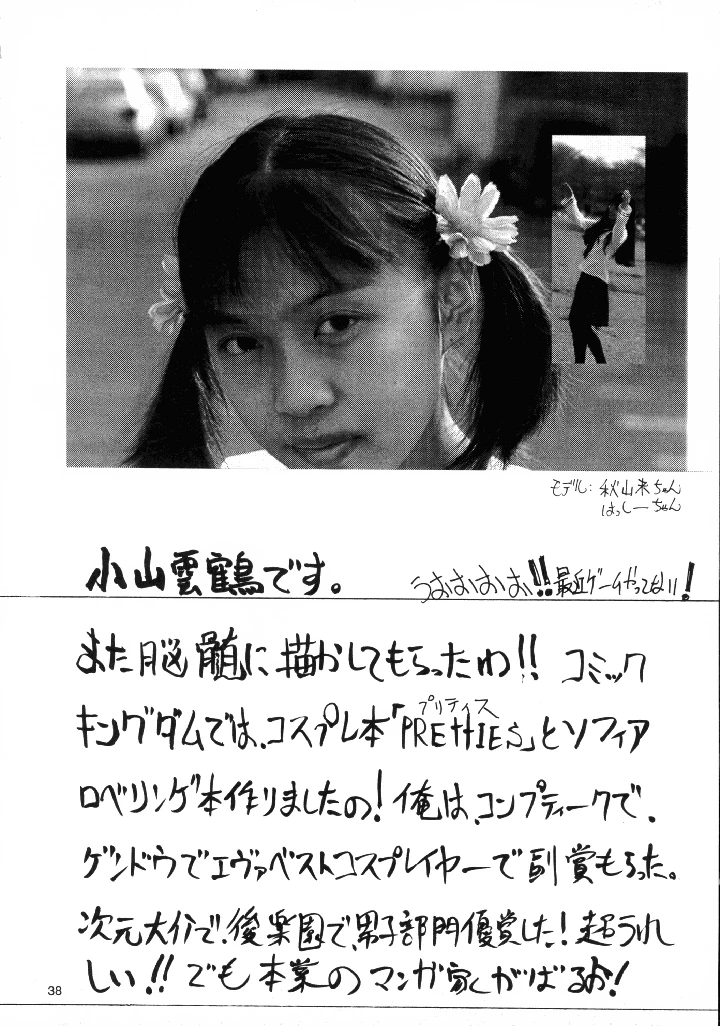 モデル:秋山来ちゃん
はっしーちゃん
小山雲鶴です。
うおおおおお!!最近ゲームやってない!!
また脳髄に描かしてもらったわ!! コミック
キングダムでは、コスプレ本「PRETTIES」とソフィア
プリティス
ロベリンゲ本作りましたの!俺は、コンプティークで、
ゲンドウでエヴァベストコスプレイヤーで副賞もらった。
次元大介で、後楽園で、男子部門優賞した!超うれ
しい!!でも本業のマンガ家くがばるお!
38